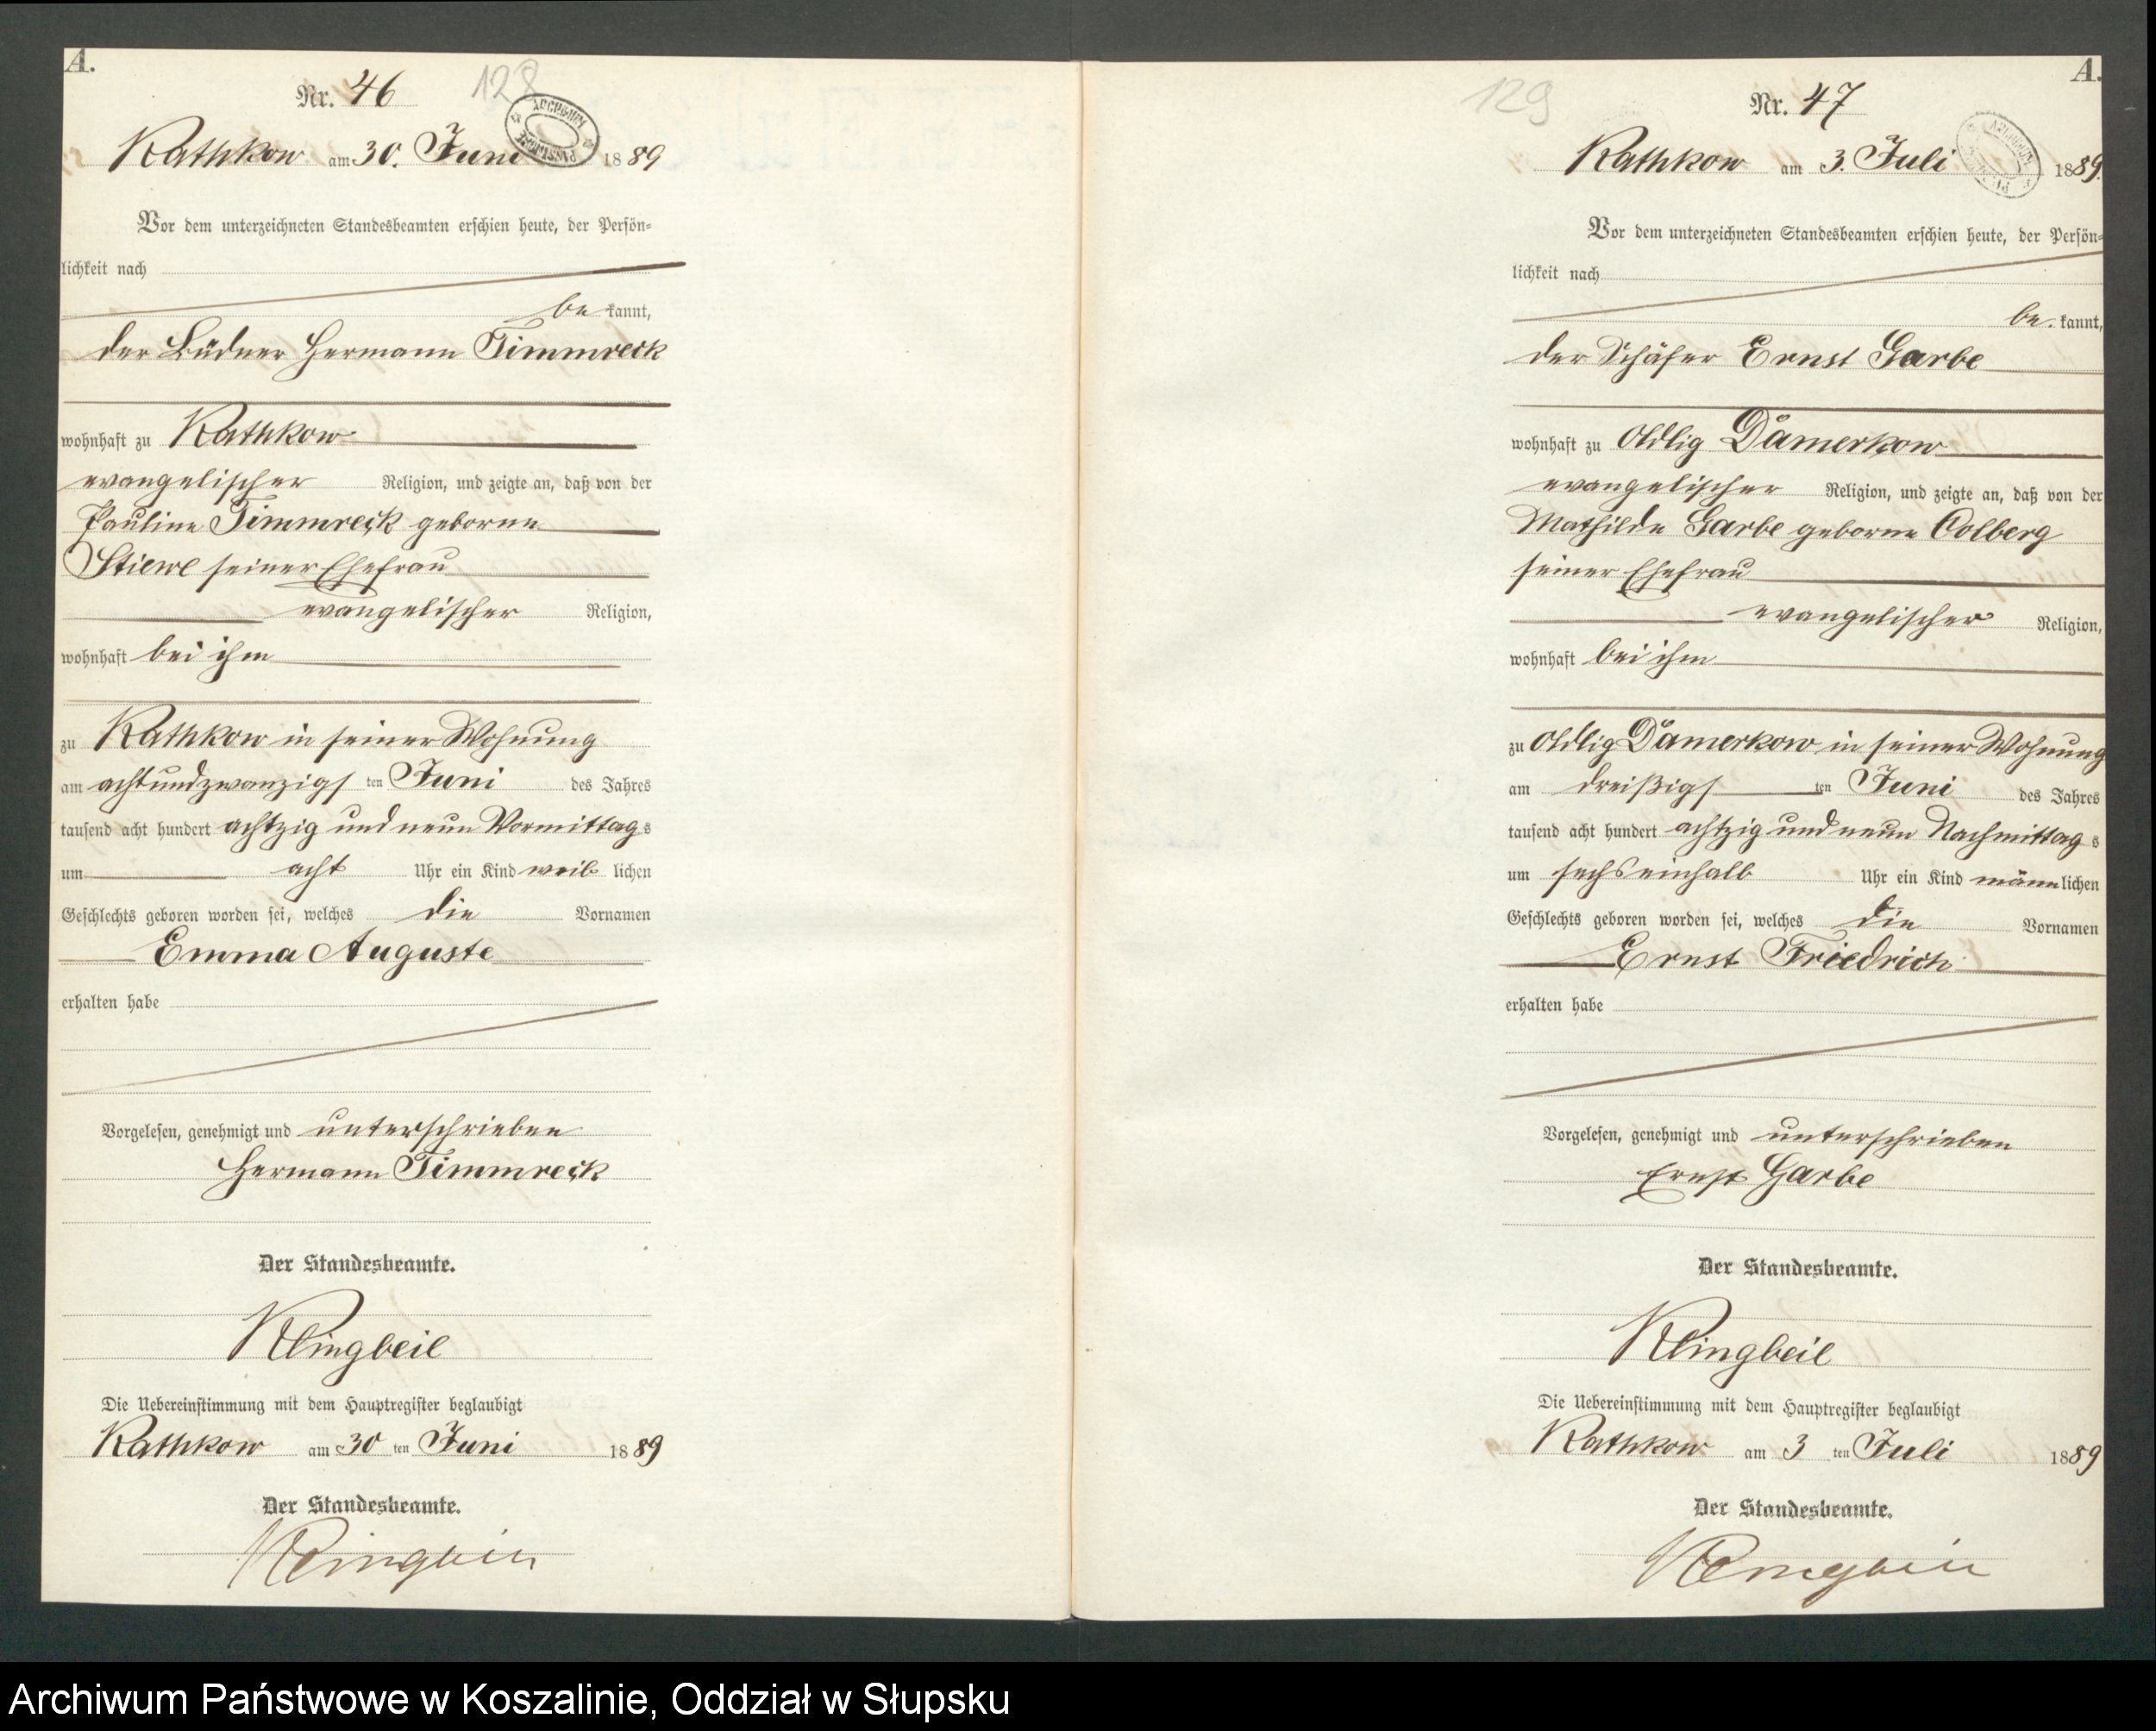 A.
Nr. 46
128
ARCHIWUM PAŃSTWOWE
Rathkow am 30. Juni 1889
Vor dem unterzeichneten Standesbeamten erschien heute, der Persön-
lichkeit nach
be kannt,
der Büdner Hermann Timmreck
wohnhaft zu Rathkow
evangelischer Religion, und zeigte an, daß von der
Pauline Timmreck geborne
Stiewe seiner Ehefrau
evangelischer Religion,
wohnhaft bei ihm
zu Rathkow in seiner Wohnung
am achtundzwanzigs ten Juni des Jahres
tausend acht hundert achtzig und neun Vormittags
um acht Uhr ein Kind weib lichen
Geschlechts geboren worden sei, welches die Vornamen
Emma Auguste
erhalten habe
Vorgelesen, genehmigt und unterschrieben
Hermann Timmreck
Der Standesbeamte.
Klingbeil
Die Uebereinstimmung mit dem Hauptregister beglaubigt
Rathkow am 30 ten Juni 1889
Der Standesbeamte.
Klingbeil
A.
Nr. 47
129
Rathkow am 3. Juli 1889.
Vor dem unterzeichneten Standesbeamten erschien heute, der Persön-
lichkeit nach
be. kannt,
der Schäfer Ernst Garbe
wohnhaft zu Adlig Dämerkow
evangelischer Religion, und zeigte an, daß von der
Mathilde Garbe geborne Colberg
seiner Ehefrau
evangelischer Religion,
wohnhaft bei ihm
zu Adlig Dämerkow in seiner Wohnung
am dreißigs ten Juni des Jahres
tausend acht hundert achtzig und neun Nachmittags
um sechseinhalb Uhr ein Kind männlichen
Geschlechts geboren worden sei, welches die Vornamen
Ernst Friedrich
erhalten habe
Vorgelesen, genehmigt und unterschrieben
Ernst Garbe
Der Standesbeamte.
Klingbeil
Die Uebereinstimmung mit dem Hauptregister beglaubigt
Rathkow am 3 ten Juli 1889
Der Standesbeamte.
Klingbeil
Archiwum Państwowe w Koszalinie, Oddział w Słupsku